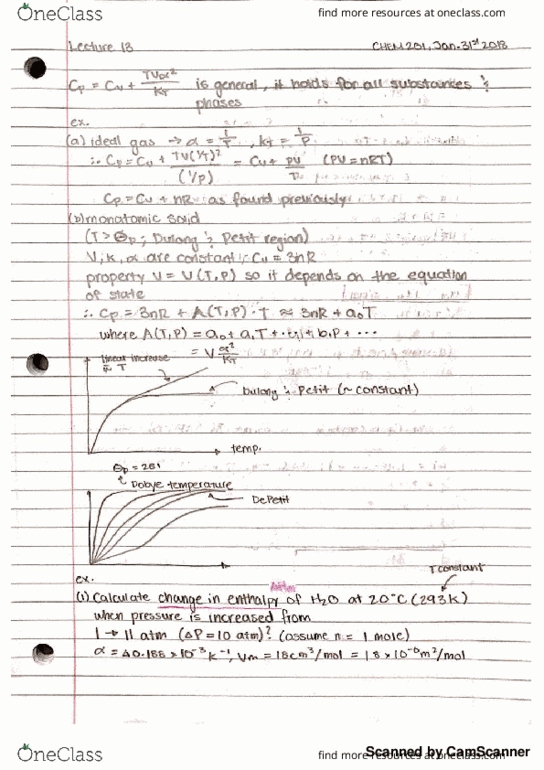 OneClass find more resources at oneclass.com
Lecture 13 CHEM 201, Jan. 31st 2018
Cp = Cv + TVα²/κT is general, it holds for all substances & phases
ex.
(a) ideal gas → α = 1/T, κT = 1/P
∴ Cp = Cv + TV(1/T)²/(1/P) = Cv + PV/T (PV = nRT)
Cp = Cv + nR as found previously
(b) monatomic solid
(T > ΘD; Dulong & Petit region)
V, κ, α are constant ∴ Cv = 3nR
property V = V(T,P) so it depends on the equation
of state
∴ Cp = 3nR + A(T,P)·T ≈ 3nR + a₀T
where A(T,P) = a₀ + a₁T + ... + b₁P + ...
= V α²/κT
linear increase
T
Dulong & Petit (~ constant)
temp.
Debye temperature
DePetit
T constant
ex.
(1) Calculate change in enthalpy of H₂O at 20°C (293K)
when pressure is increased from
1 → 11 atm (ΔP = 10 atm)? (assume n = 1 mole)
Vm = 18cm³/mol = 18 × 10⁻⁶m³/mol
OneClass find more resources at oneclass.com
Scanned by CamScanner